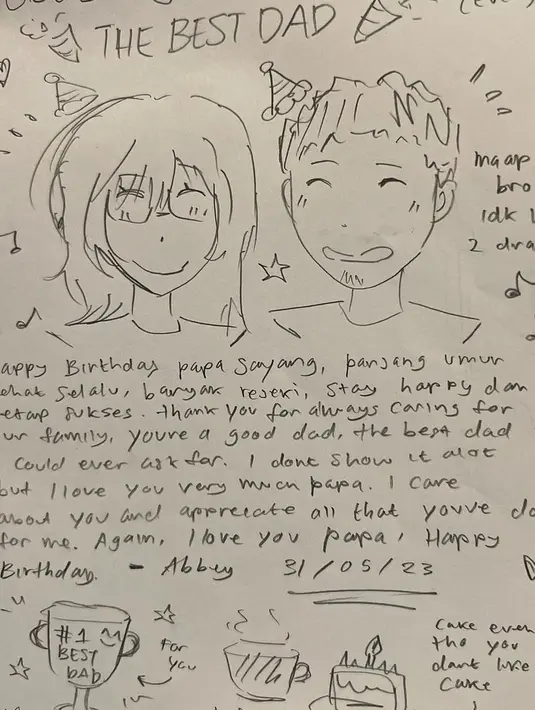 THE BEST DAD
maap
bro
idk
2 dra
appy Birthday papa sayang, panjang umur
ehat selalu, banyak rezeki, stay happy dan
etap sukses. thank you for always caring for
ur family, youre a good dad, the best dad
could ever ask for. I dont show it alot
but I love you very much papa. I care
about you and appreciate all that youve do
for me. Again, I love you papa, Happy
Birthday. - Abbey 31/05/23
#1
BEST
DAD
For
you
Cake even
tho you
dont like
cake